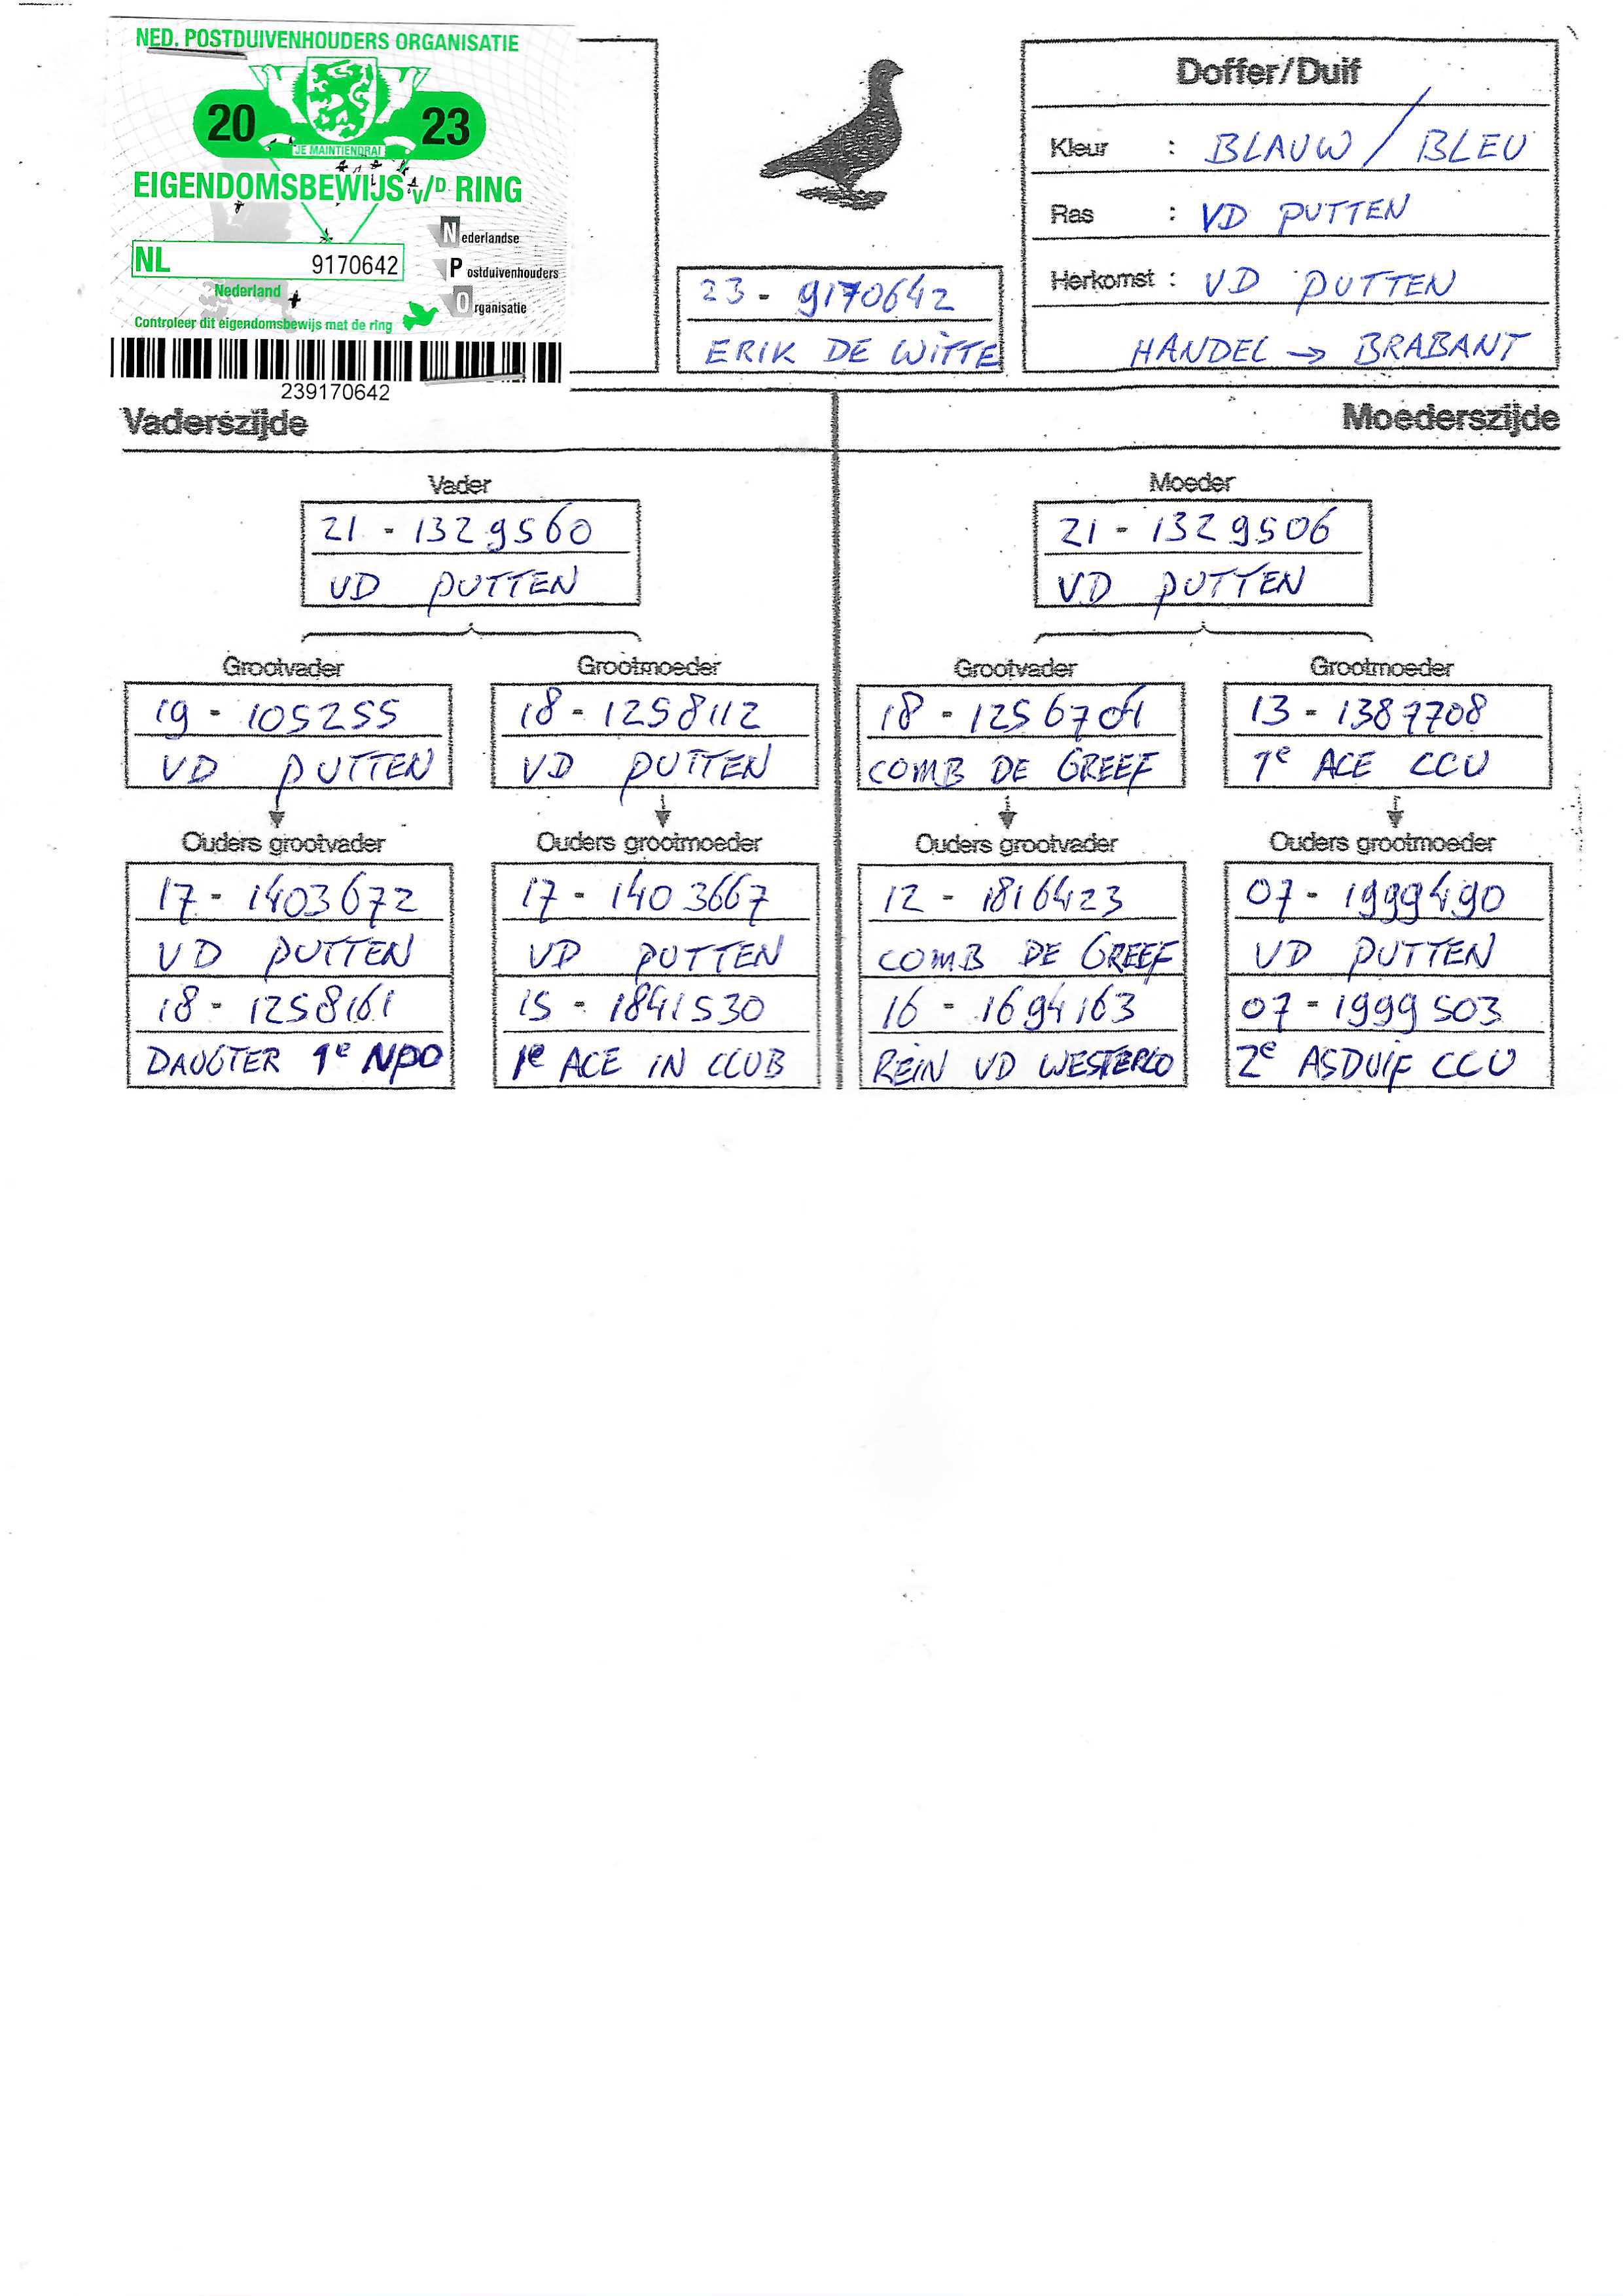 NED. POSTDUIVENHOUDERS ORGANISATIE
20 23
JE MAINTIENDRAI
EIGENDOMSBEWIJS v/D. RING
NL 9170642
Nederland
Nederlandse
Postduivenhouders
Organisatie
Controleer dit eigendomsbewijs met de ring
239170642
23 - 9170642
ERIK DE WITTE
Doffer/Duif
Kleur : BLAUW / BLEU
Ras : VD PUTTEN
Herkomst : VD PUTTEN
HANDEL → BRABANT
Vaderszijde
Moederszijde
Vader
21 - 1329560
VD PUTTEN
Moeder
21 - 1329506
VD PUTTEN
Grootvader
19 - 105255
VD PUTTEN
Grootmoeder
18 - 1258112
VD PUTTEN
Grootvader
18 -
COMB DE GREEF
Grootmoeder
13 - 1387708
1e ACE CCU
Ouders grootvader
17 - 1403672
VD PUTTEN
18 - 1258161
DAUGTER 1e NPO
Ouders grootmoeder
17 - 1403667
VD PUTTEN
15 - 1841530
1e ACE IN CLUB
Ouders grootvader
12 - 1816423
COMB DE GREEF
16 - 1694163
REIN VD WESTERLO
Ouders grootmoeder
07 - 1999490
VD PUTTEN
07 - 1999503
2e ASDUIF CCU